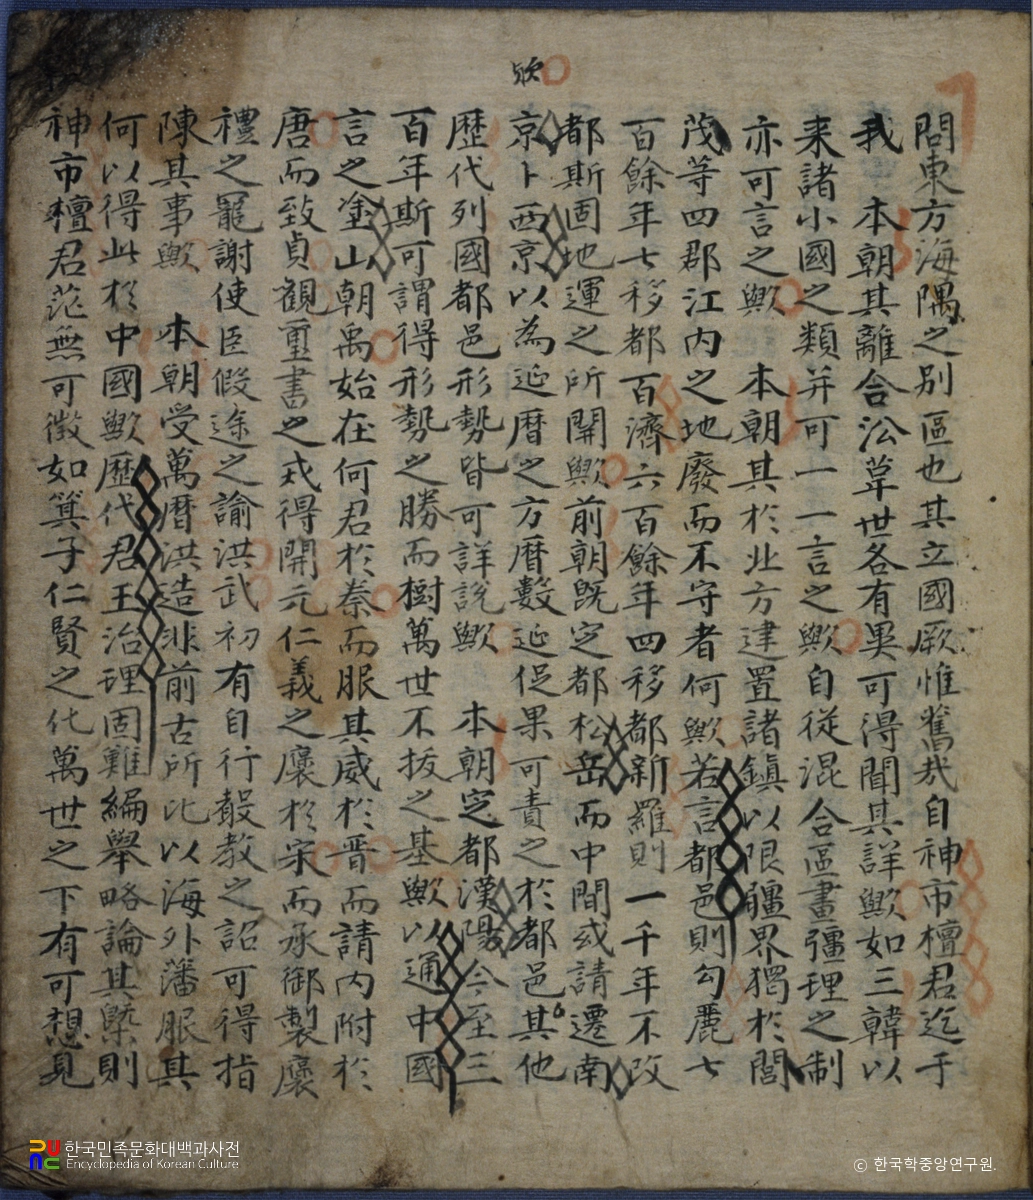 欤
問東方海隅之別區也其立國厥惟舊哉自神市檀君迄于
我 本朝其離合沿革世各有異可得聞其詳歟如三韓以
来諸小國之類并可一一言之歟自從混合區畫彊理之制
亦可言之歟 本朝其於北方建置諸鎮以限疆界獨於閭
茂等四郡江内之地廢而不守者何歟若言都邑則勾麗七
百餘年七移都百濟六百餘年四移都新羅則一千年不改
都斯固地運之所關歟前朝旣定都松岳而中間或請遷南
京卜西京以為延曆之方曆數延促果可責之於都邑其他
歷代列國都邑形勢皆可詳說歟 本朝定都漢陽今至三
百年斯可謂得形勢之勝而樹萬世不拔之基歟以通中國
言之塗山朝禹始在何君於秦而服其威於晋而請内附於
唐而致貞觀璽書之戎得開元仁義之褒於宋而承御製褒
禮之寵謝使臣假途之諭洪武初有自行聲教之詔可得指
陳其事歟 本朝受萬曆洪造非前古所比以海外藩服其
何以得此於中國歟歷代君王治理固難編舉略論其槩則
神市檀君茫無可徵如箕子仁賢之化萬世之下有可想見
한국민족문화대백과사전
Encyclopedia of Korean Culture
© 한국학중앙연구원.